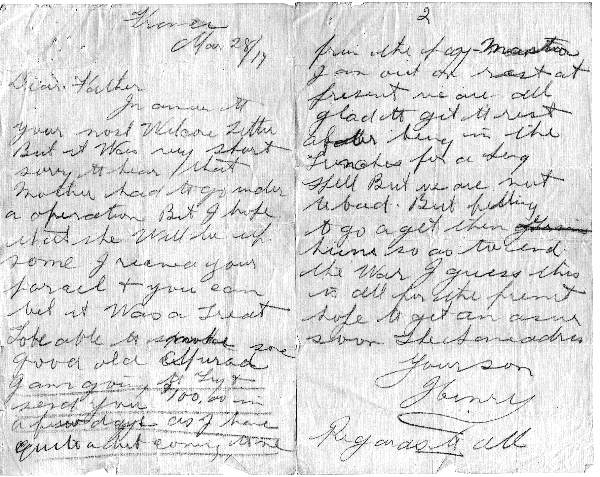 France
Mar 28/19
Dear Father
In answer to
your most Welcome Letter
But it Was very short
sorry to hear that
Mother had to go under
a operation But I hope
that she Will be up
some I received your
parcel & you can
bet it Was a Treat
To be able to smoke some
good old Murad
I am going to try &
send you 700.00 in
a few days as I have
quite a bit coming to me
2
from the pay-Master
I am out on rest at
present we are all
glad to get to rest
after being in the
Trenches for a long
spell But we are not
to bad. But
to go a get them
huns so as to end
the War I guess this
is all for the present
hope to get an answer
soon The Same adres
Your son
Henry
Regards to all